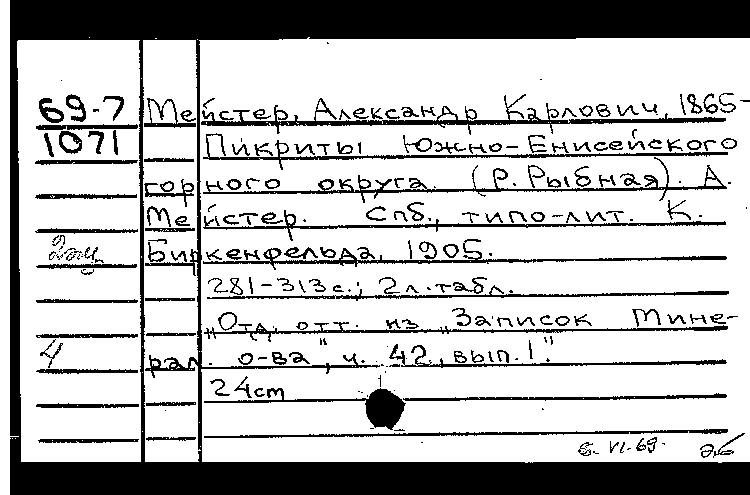 69-7 Мейстер, Александр Карлович, 1865-
1071 Пикриты Южно-Енисейского
горного округа (Р. Рыбная). А.
Мейстер. Спб., типо-лит. К.
Биркенфельда, 1905.
281-313 с.; 2 л. табл.
„Отд. отт. из „Записок Мине-
4 рал. о-ва", ч. 42, вып. 1."
24cm
6.VI.69.